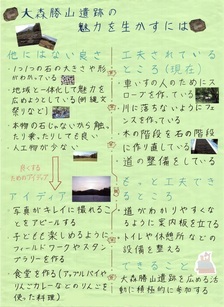 大森勝山遺跡の
魅力を生かすには
他にはない良さ
・1つ1つの石の大きさや形
がわかれている
・地域と一体化して魅力を
広めようとしている(例:縄文
祭りなど)
・本物の石じゃないから触っ
たり乗ったりしても良い
・人工物が少ない
良くする
ためのアイディア
アイディア
・写真がキレイに撮れるこ
とをアピールする
・子ども達楽しめるように
フィールドワークやスタン
プラリーを作る
・食堂を作る(アップルパイや
りんごカレーなどのりんごを
使った料理)
工夫されている
ところ(現在)
・車いすの人のためにスロ
ープを作っている
・川に落ちないようにフェ
ンスを作っている
・木の階段を石の階段
に作り直している
・道の整備をしている
もっと工夫でき
るところ
・道がわかりやすくなる
ように案内板を立てる
・トイレや休憩所などの
設備を整える
・大森勝山遺跡を広める活
動に積極的に参加する